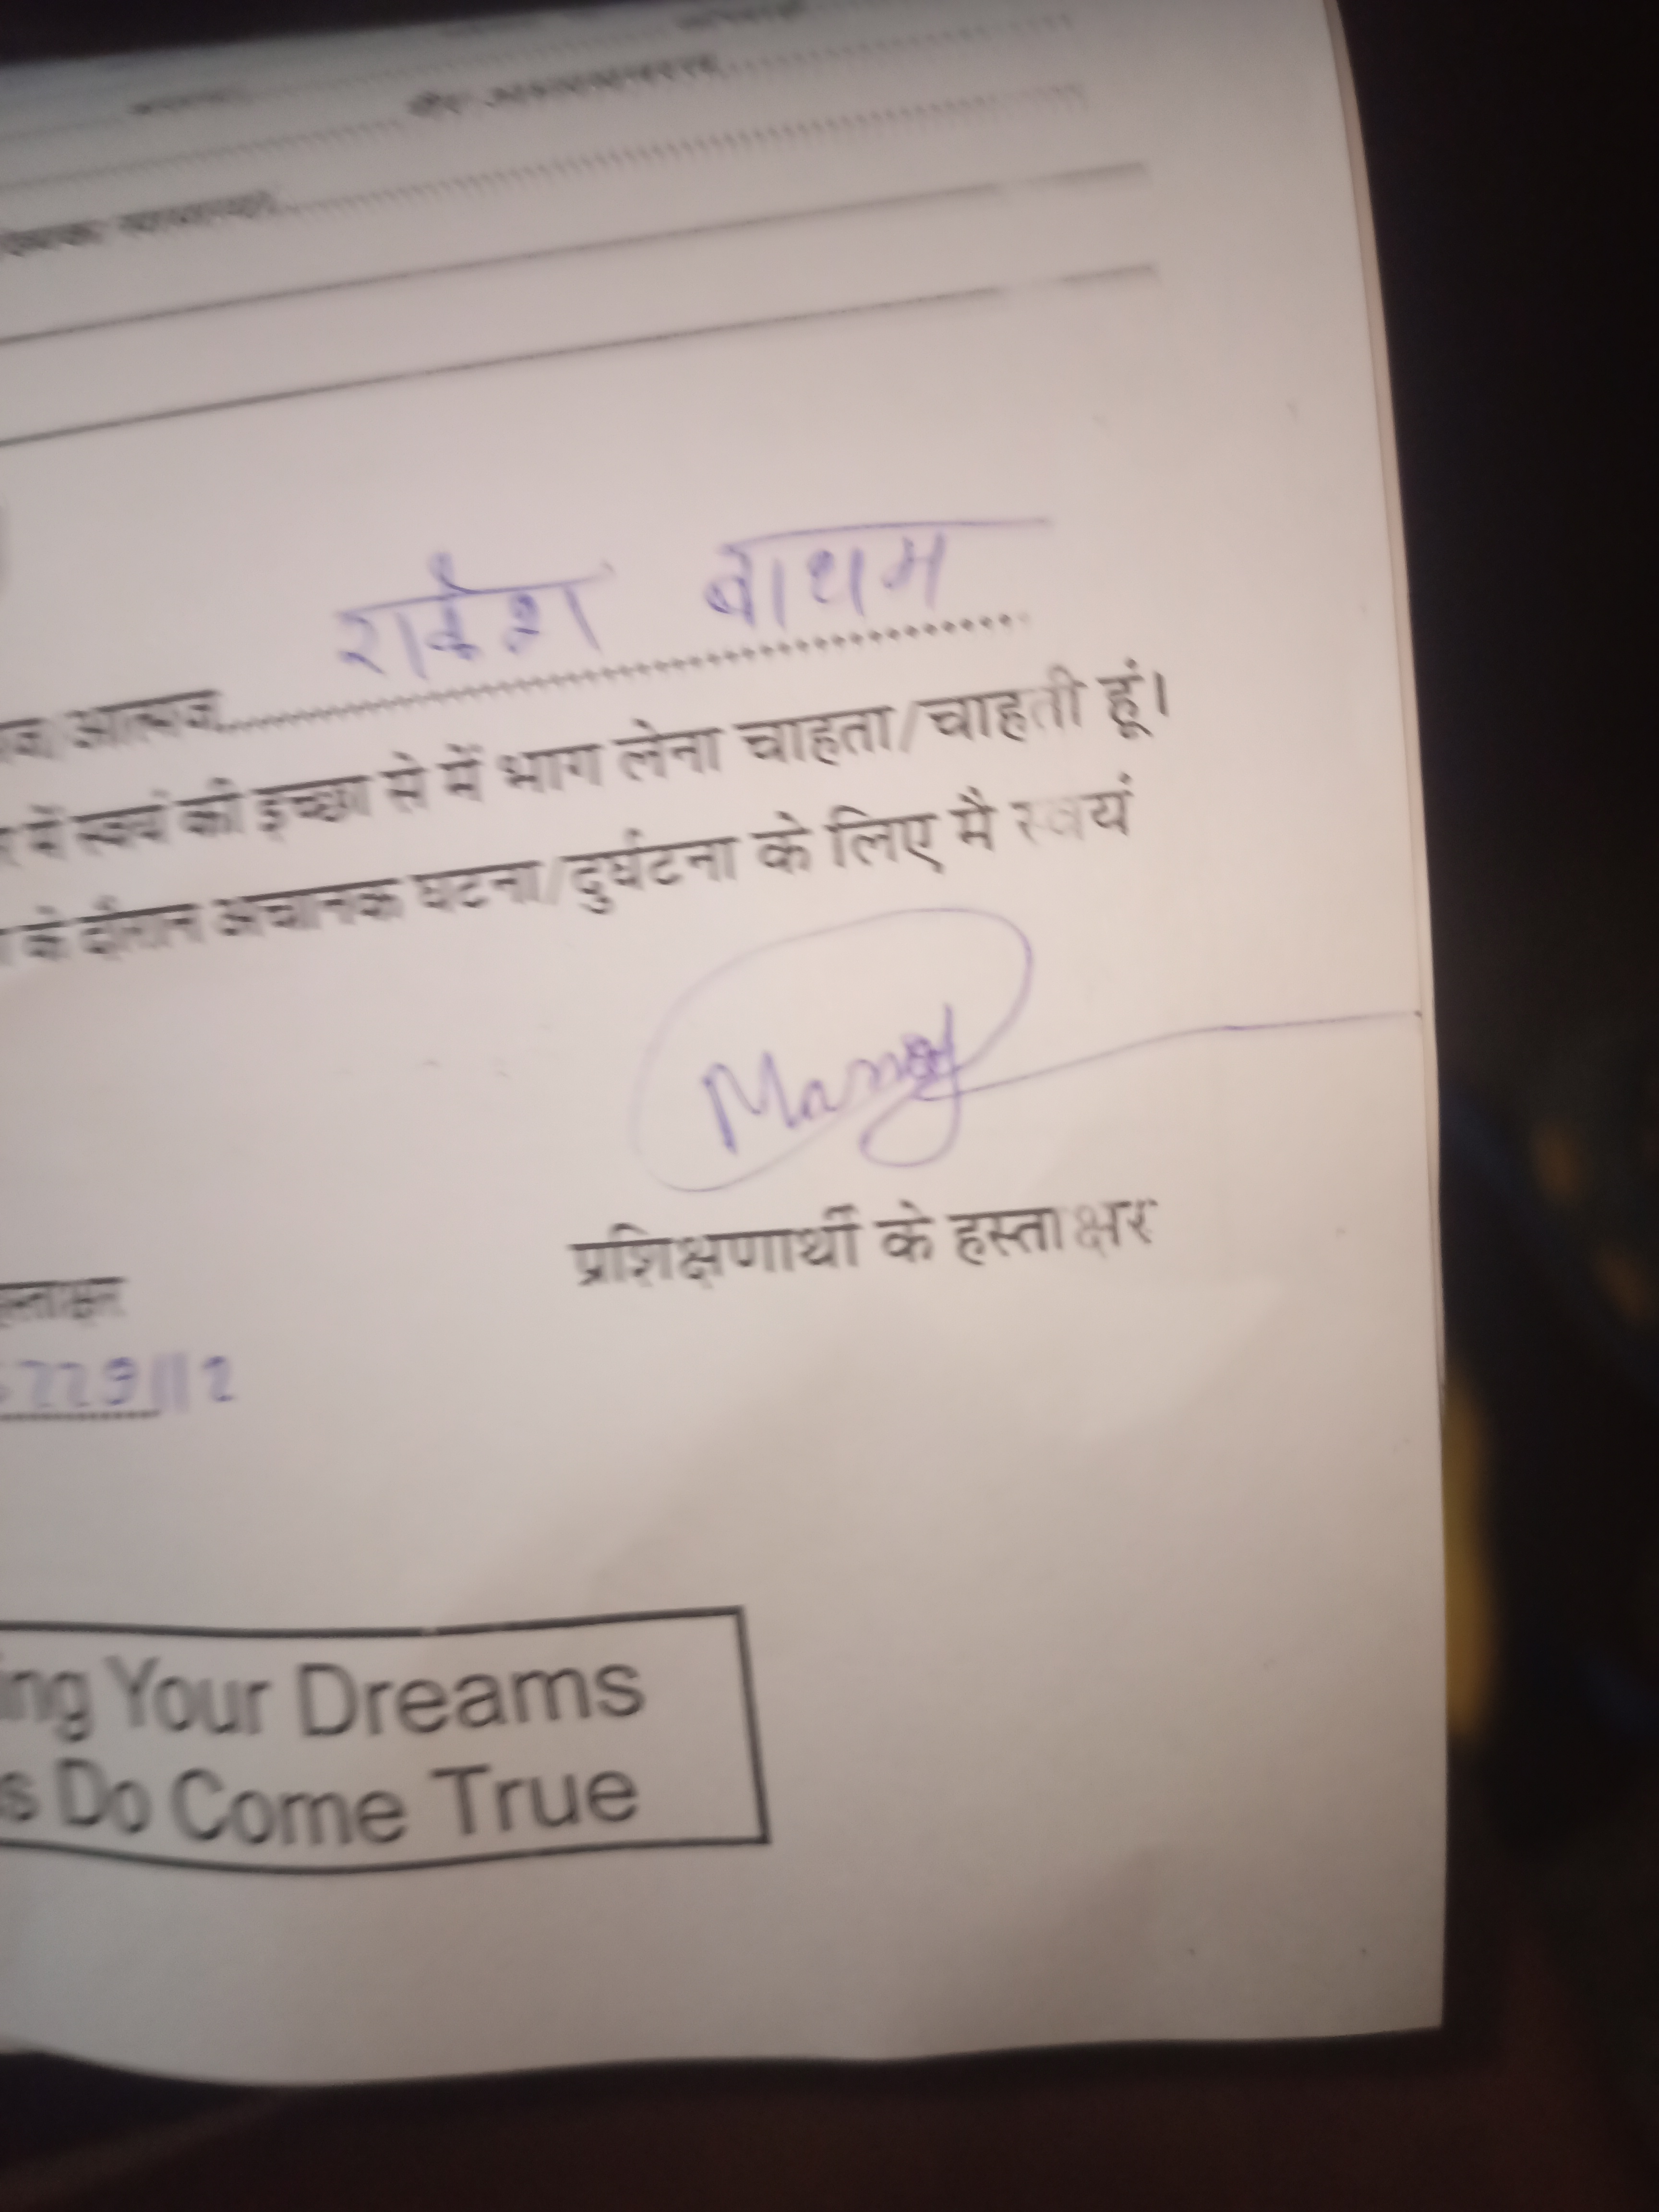 राकेश बाथम
आत्मज
में स्वयं की इच्छा से में भाग लेना चाहता/चाहती हूं।
के दौरान अचानक घटना/दुर्घटना के लिए मै स्वयं
Manoj
प्रशिक्षणार्थी के हस्ताक्षर
स्ताक्षर
229112
ing Your Dreams
s Do Come True